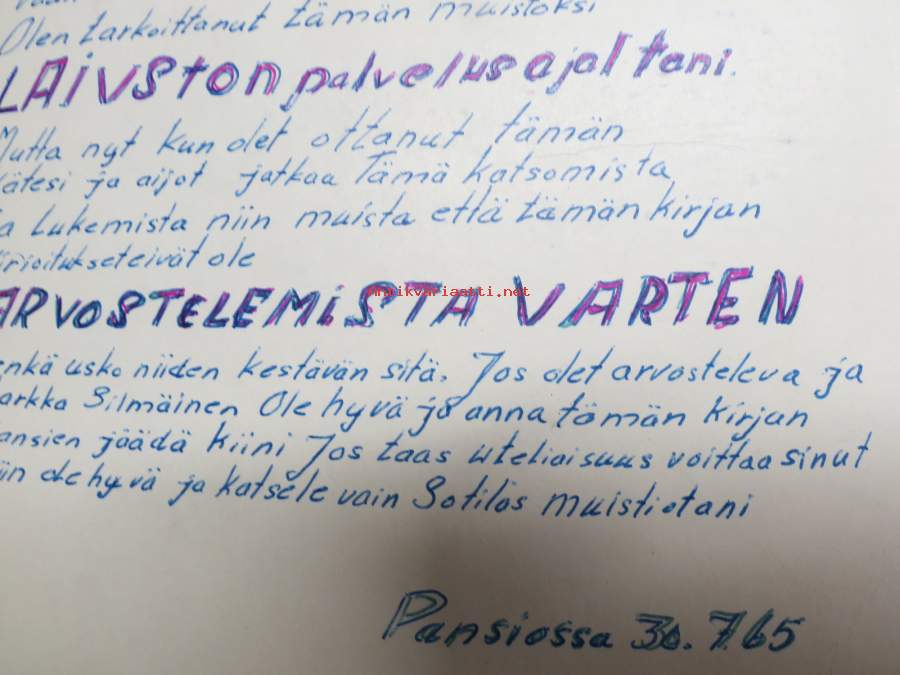 vaan
Olen tarkoittanut tämän muistoksi
LAIVSTON palvelusajaltani.
Mutta nyt kun olet ottanut tämän
kätesi ja aijot jatkaa Tämä katsomista
ja Lukemista niin muista että tämän kirjan
kirjoitukset eivät ole
ARVOSTELEMISTA VARTEN
Antikvariaatti.net
enkä usko niiden kestävän sitä. Jos olet arvosteleva ja
tarkka Silmäinen Ole hyvä ja anna tämän kirjan
kansien jäädä kiini Jos taas uteliaisuus voittaa sinut
niin ole hyvä ja katsele vain Sotilas muistiotani
Pansiossa 30. 7.65